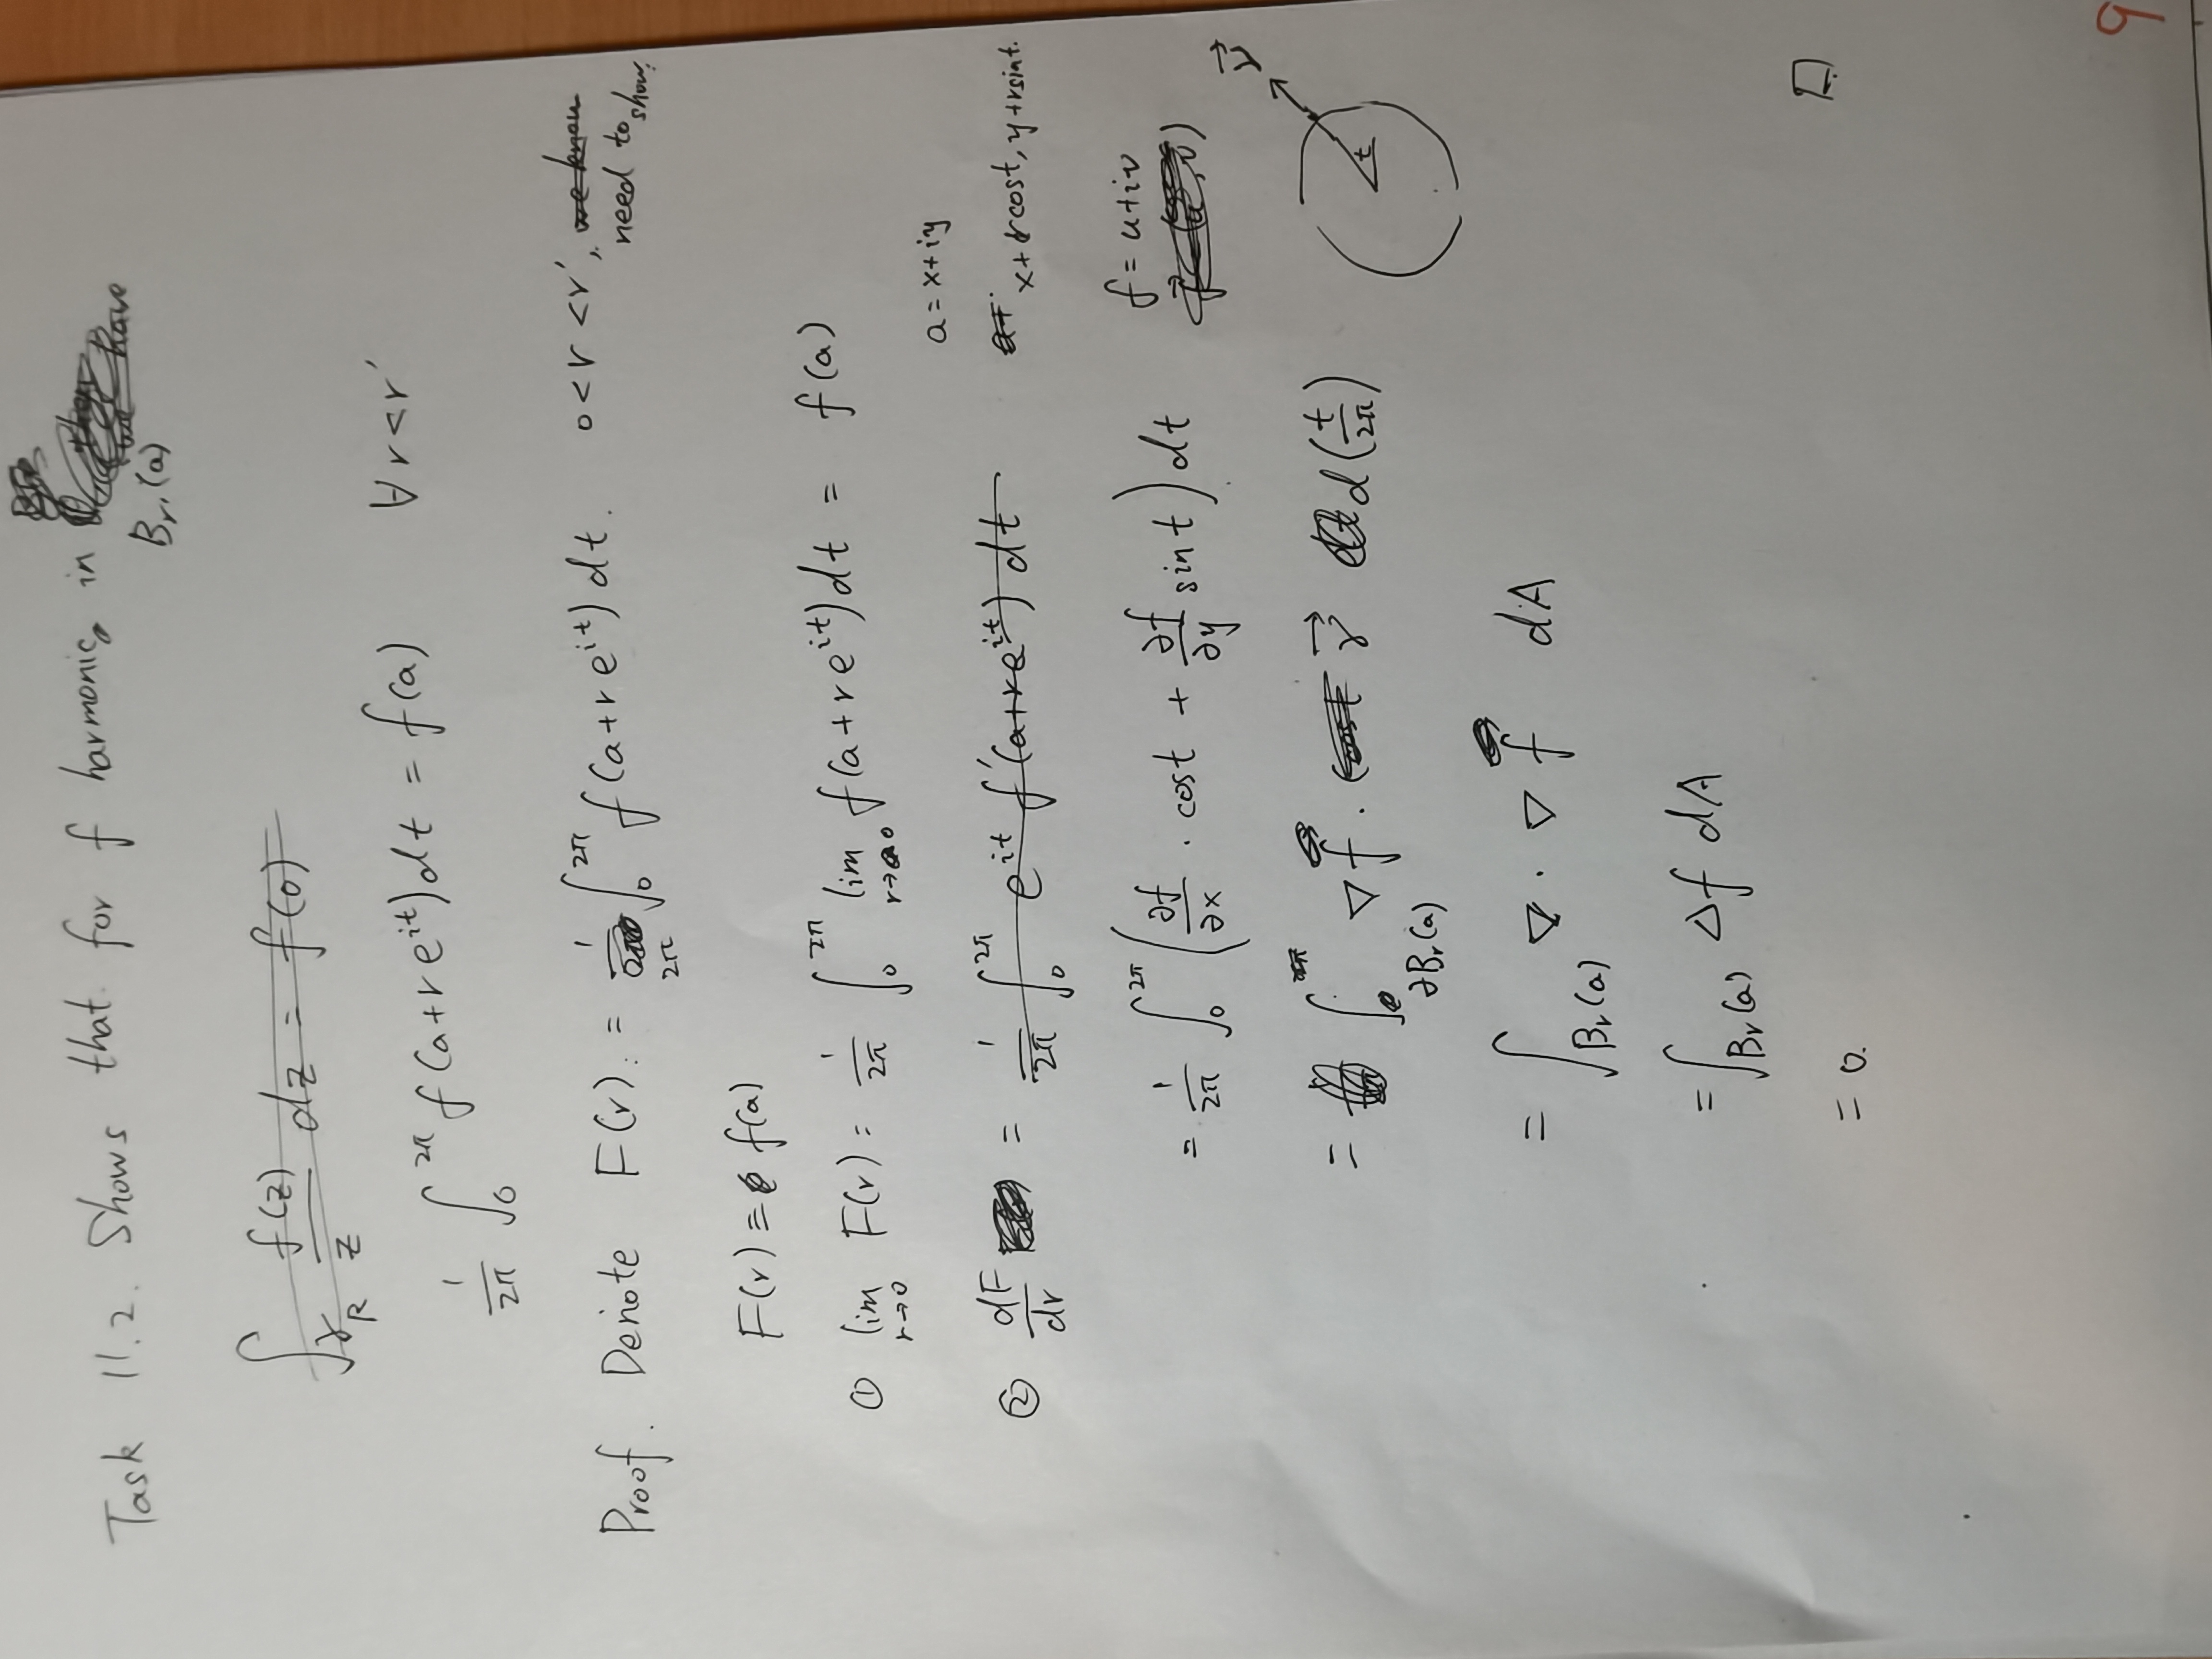 Task 11.2. Shows that for f harmonic in have
B_{r'}(a)
∫_{γ_R} f(z)/z dz = f(0)
1/2π ∫_0^{2π} f(a+re^{it})dt = f(a) ∀ r<r'
Proof. Denote F(r) := 1/2π ∫_0^{2π} f(a+re^{it})dt. 0<r<r', we know
need to show:
F(r) ≡ f(a)
① lim_{r→0} F(r) = 1/2π ∫_0^{2π} lim_{r→0} f(a+re^{it})dt = f(a)
a = x+iy
② dF/dr = 1/2π ∫_0^{2π} e^{it} f'(a+re^{it}) dt
x+rcost, y+rsint.
= 1/2π ∫_0^{2π} (∂f/∂x · cost + ∂f/∂y sint) dt
f = u+iv
= ∫_{∂B_r(a)} ∇f · γ⃗ d(t/2π)
γ⃗
t
= ∫_{B_r(a)} ∇ · ∇f dA
= ∫_{B_r(a)} Δf dA
= 0. □
9